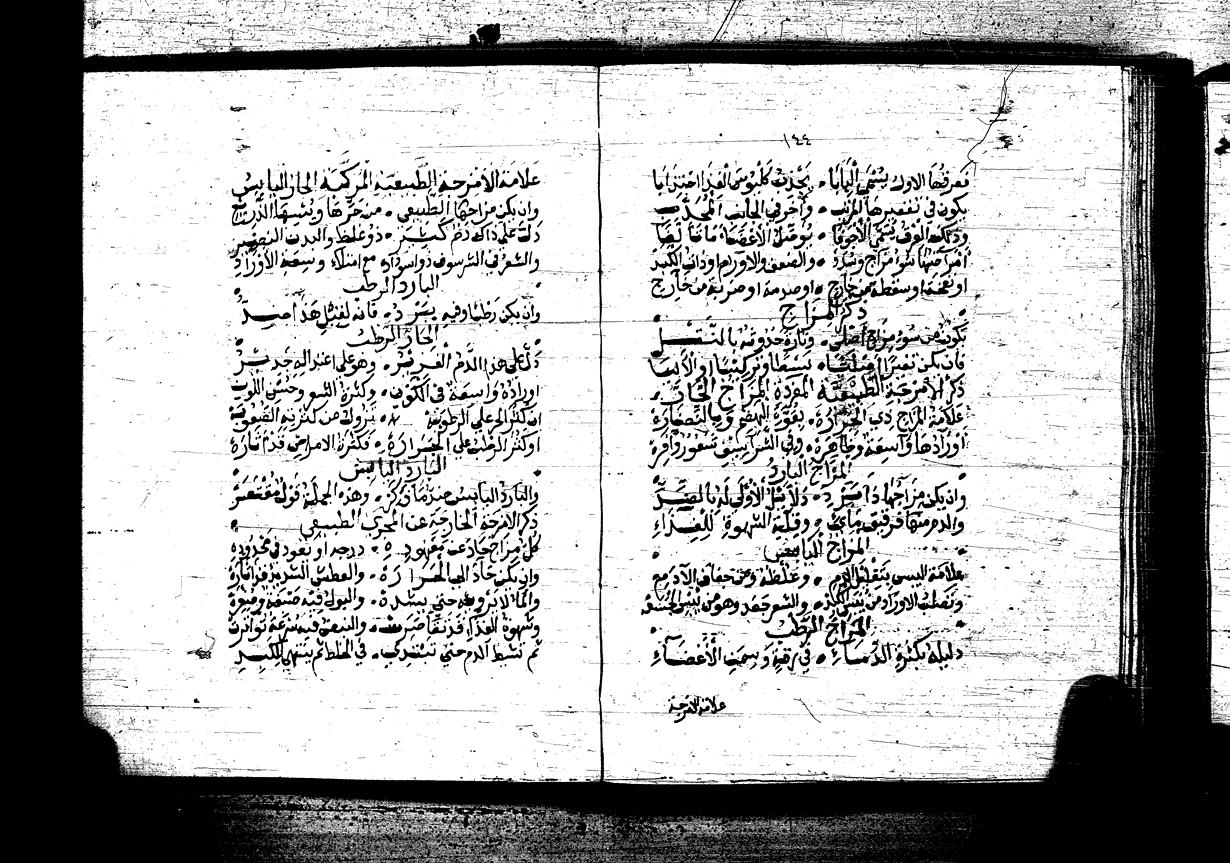 ١٤٤
فعرقها الاول يسمى البابا • يجذب كلبوس الغذا اجتذابا
يكون في تقعيرها المرتب • وآخر في الجانب المحدب
وذلك العرق يسمى الاجوفا • يوصل الاعضاء ما قد
امراضها سوء مزاج وسدد • والضعف والاورام وذات الكبد
او نفخة او سقطة من خارج • او صدمة او ضربة من خارج
ذكر المزاج
تكون من سوء مزاج اصلي • وتارة حدوثه بالنقل
فان يكن تغيرا
ذكر الامزجة الطبيعية المفردة المزاج الحار
علامة المزاج ذي الحرارة • بقوة الهضم وبالنضارة
اورادها واسعة وظاهرة • وفي الشراسيف شعور وافرة
المزاج البارد
وان يكن مزاجها ذا برد • دلائل الاولى له بالضد
والدم منها فرقيق مائي • وقلة الشهوة للغذاء
المزاج اليابس
علامة اليبس بتقليل الدم • وغلظة ومن جفاف الآدم مع
وتصلب الاوراد من • والشعر جعد وهو من
المزاج الرطب
دليله بكثرة الدماء • في رقة وسمن الاعضاء
علامة الامزجة
علامة الامزجة الطبيعية المركبة الحار اليابس
وان يكن مزاجها الطبيعي • من حرها ويبسها
دلت على ذاك دم كثير • ذو غلظ والبدن
والشعر في الشرسوف ذو اسوداد • مع امتلاء وسعة الاوراد
البارد الرطب
وان يكن رطبا وفيه برد • فانه لمثل هذا ضد
الحار الرطب
دل على هذا الدم الغزير • وهو على اعتداله جدير
اورادة واسعة في الكون • وكثرة الشعر وحسن اللون
ان كثر الحر على الرطوبة • من كثرة العفونة
او كثر الرطب على الحرارة • فكثرة الامراض قد تارة
البارد اليابس
والبارد اليابس ضد ما ذكر • وهذه الجملة قول مختصر
ذكر الامزجة الخارجة عن المجرى الطبيعي
كل مزاج حاد عن معهوده • درجة او يعود في محدوده
وان يكن حاد الى الحرارة • والعطش الشديد فرا تارة
والماء لا يرويه حتى بشده • والبول فيه صبغة وحدة
وشهوة الغذاء قد تقاصرت • والنبض فيه سرعة تواترت
ثم نشط الدم حتى تبتدي • في الخلط ثم ينتهي بالكبد